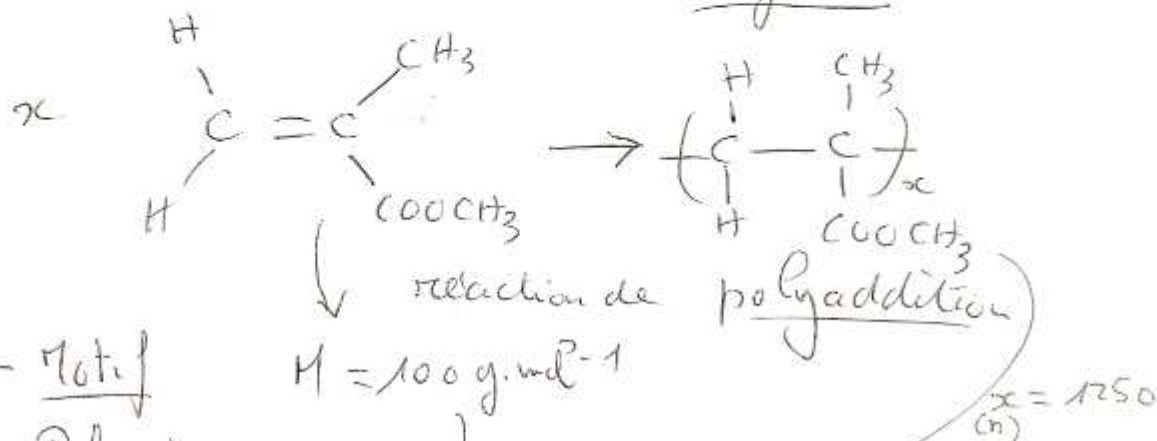 H CH3 H CH3
x C = C → ( C — C )x
H COOCH3 H COOCH3
réaction de polyaddition
- Motif M = 100 g.mol-1 x = 1250
(n)